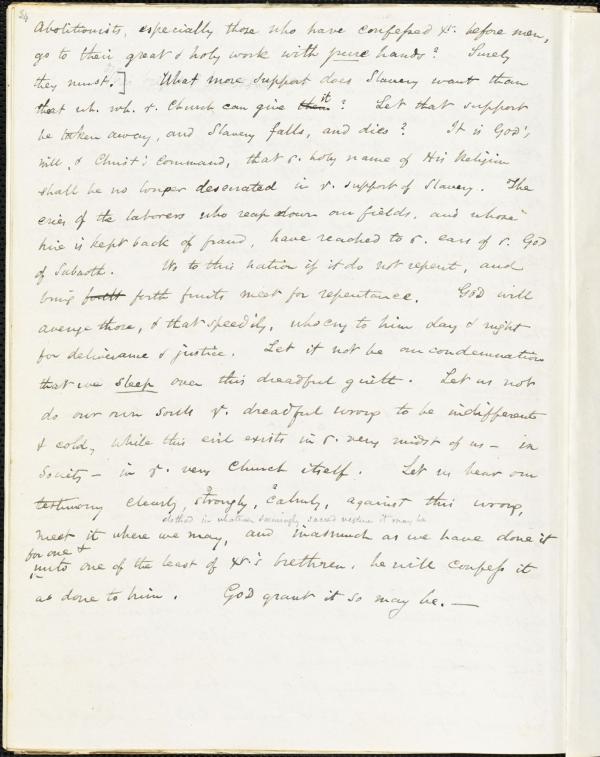 24
Abolitionists, especially those who have confessed Xt. before men,
go to their great & holy work with pure hands? Surely
they must.] What more support does Slavery want than
that wh. wh. ye. Church can give them it? Let that support
be taken away, and Slavery falls, and dies? It is God's
will, & Christ's command, that ye. holy name of His Religion
shall be no longer desecrated in ye. support of Slavery. The
cries of the laborers who reap down our fields, and whose
hire is kept back of fraud, have reached to ye. ears of ye. God
of Sabaoth. Wo to this nation if it do not repent, and
bring forth fruits meet for repentance. God will
avenge those, & that speedily, who cry to him day & night
for deliverance & justice. Let it not be our condemnation
that we sleep over this dreadful guilt. Let us not
do our own souls ye. dreadful wrong to be indifferent
& cold, while this evil exists in ye. very midst of us – in
Society – in ye. very Church itself. Let us bear our
testimony clearly, strongly, calmly, against this wrong,
clothed in whatever seemingly sacred vesture it may be
meet it where we may, and inasmuch as we have done it
for one &
unto one of the least of Xt.'s brethren, he will confess it
as done to him. God grant it so may be. —